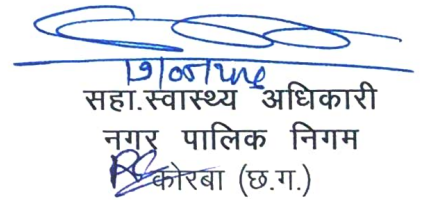 सहा.स्वास्थ्य अधिकारी
नगर पालिक निगम
कोरबा (छ.ग.)